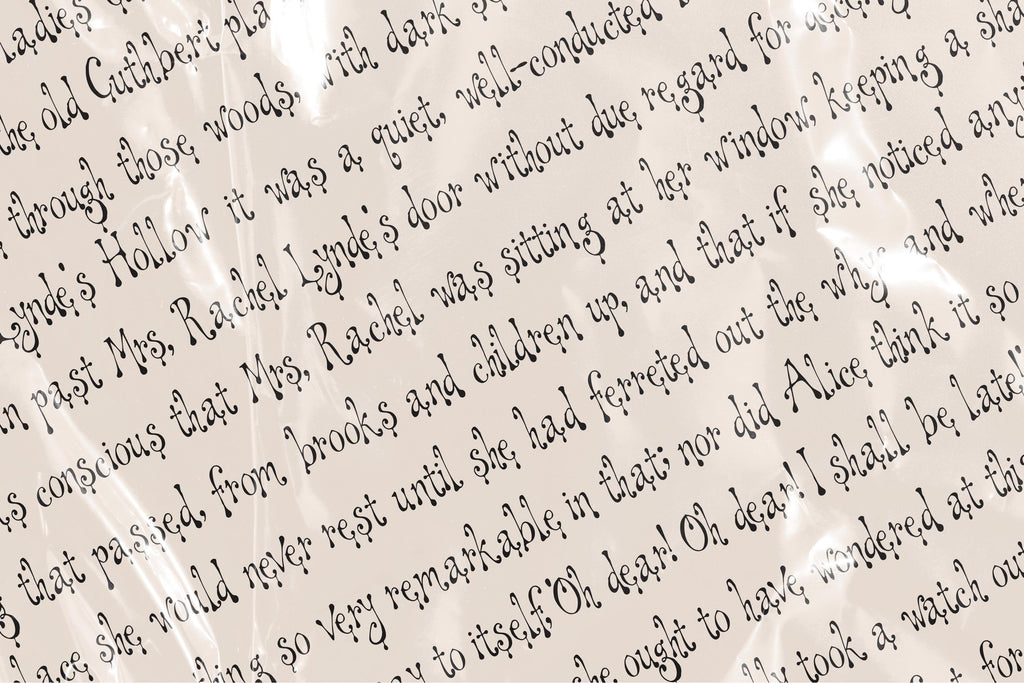 ladies
the old Cuthbert pla
through those woods, with dark
Lynde's Hollow it was a quiet, well-conducted
n past Mrs, Rachel Lynde's door without due regard for
as conscious that Mrs, Rachel was sitting at her window, keeping a sha
g that passed, from brooks and children up, and that if she noticed any
lace she would never rest until she had ferreted out the why and whe
thing so very remarkable in that; nor did Alice think it so
ay to itself 'Oh dear! Oh dear! I shall be late!
he ought to have wondered at this
lly took a watch out
for